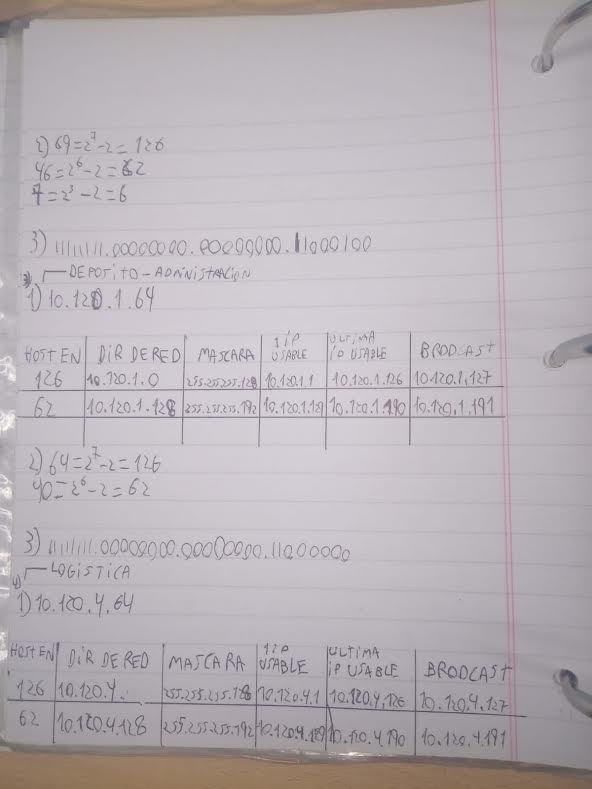 2) 69=2⁷-2=126
46=2⁶-2=62
7=2³-2=6
3) 11111111.00000000.00000000.11000100
DEPOSITO-ADMINISTRACION
1) 10.120.1.64
HOST EN DIR DE RED MASCARA 1 IP USABLE ULTIMA IP USABLE BRODCAST
126 10.120.1.0 255.255.255.128 10.120.1.1 10.120.1.126 10.120.1.127
62 10.120.1.128 255.255.255.192 10.120.1.129 10.120.1.190 10.120.1.191
2) 64=2⁷-2=126
40=2⁶-2=62
3) 11111111.00000000.00000000.11000000
LOGISTICA
1) 10.120.4.64
HOST EN DIR DE RED MASCARA 1 IP USABLE ULTIMA IP USABLE BRODCAST
126 10.120.4. 255.255.255.128 10.120.4.1 10.120.4.126 10.120.4.127
62 10.120.4.128 255.255.255.192 10.120.4.129 10.120.4.190 10.120.4.191